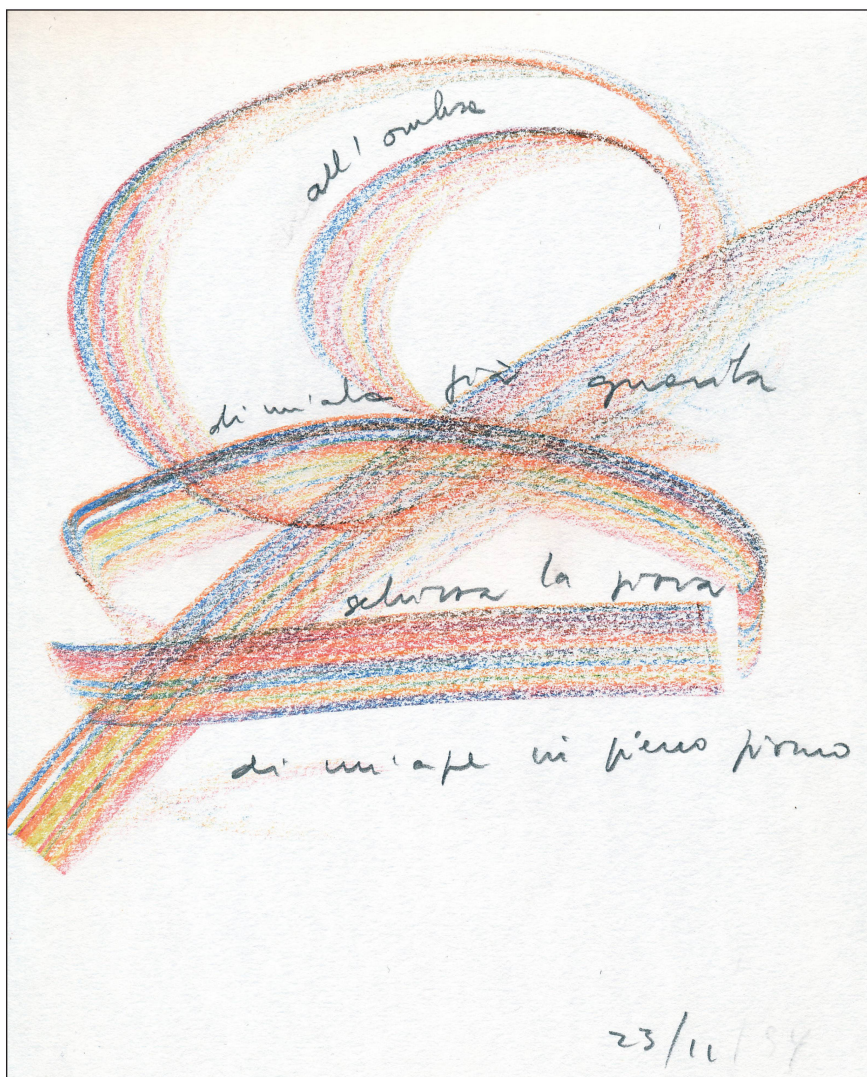 all'ombra
di un'ala già guarita
scherza la gioia
di un'ape in pieno giorno
23/11